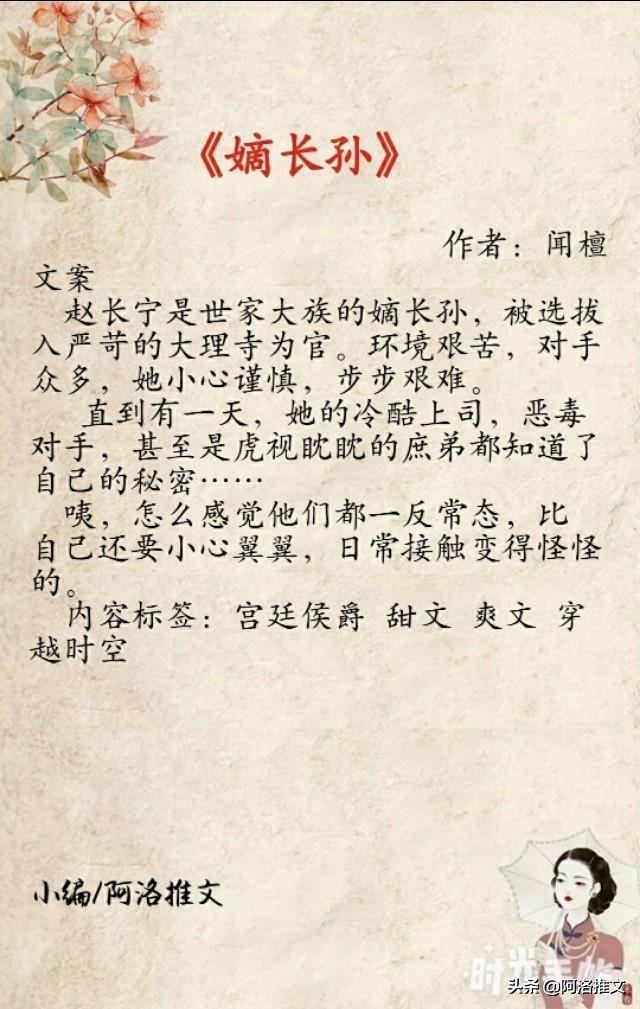 《嫡长孙》
作者：闻檀
文案
赵长宁是世家大族的嫡长孙，被选拔
入严苛的大理寺为官。环境艰苦，对手
众多，她小心谨慎，步步艰难。
直到有一天，她的冷酷上司，恶毒
对手，甚至是虎视眈眈的庶弟都知道了
自己的秘密……
咦，怎么感觉他们都一反常态，比
自己还要小心翼翼，日常接触变得怪怪
的。
内容标签：宫廷侯爵 甜文 爽文 穿
越时空
小编/阿洛推文
时光手帐
头条 @阿洛推文